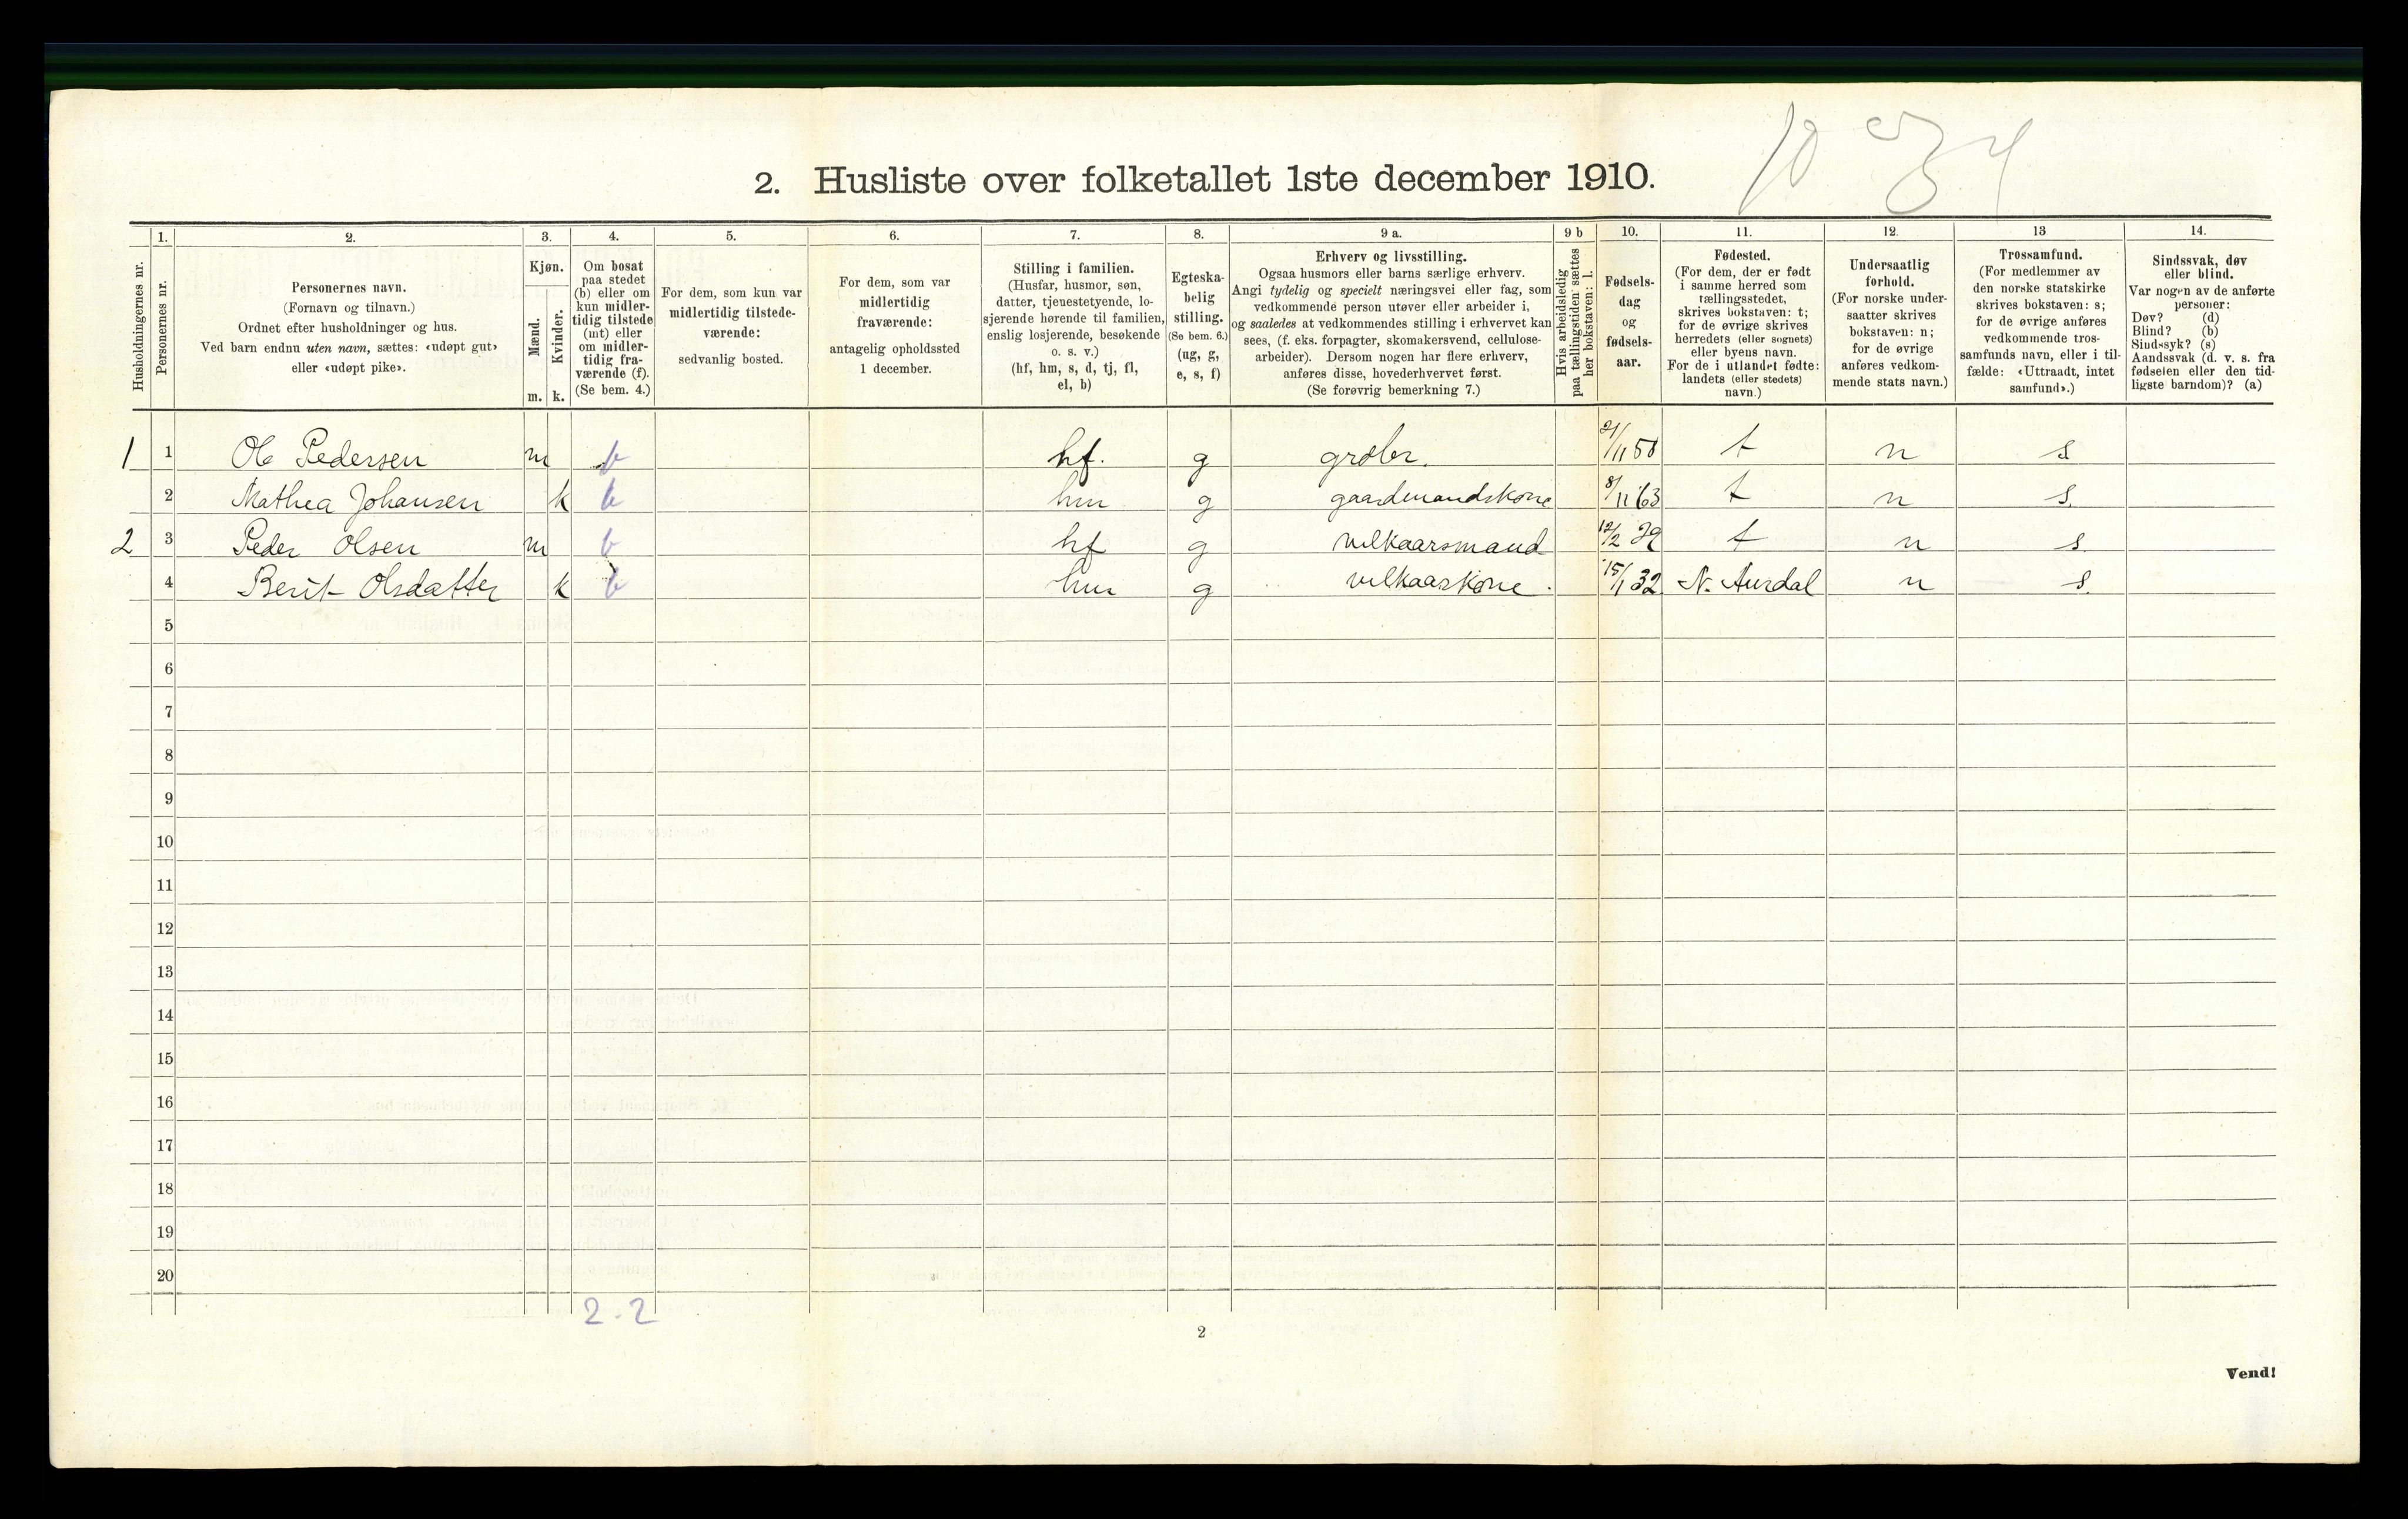 2. Husliste over folketallet 1ste december 1910.
Husholdningernes nr.
1.
Personernes nr.
2.
Personernes navn.
(Fornavn og tilnavn.)
Ordnet efter husholdninger og hus.
Ved barn endnu uten navn, sættes: «udøpt gut»
eller «udøpt pike».
3.
Kjøn.
Mænd.
Kvinder.
m. k.
4.
Om bosat
paa stedet
(b) eller om
kun midler-
tidig tilstede
(mt) eller
om midler-
tidig fra-
værende (f).
(Se bem. 4.)
5.
For dem, som kun var
midlertidig tilstede-
værende:
sedvanlig bosted.
6.
For dem, som var
midlertidig
fraværende:
antagelig opholdssted
1 december.
7.
Stilling i familien.
(Husfar, husmor, søn,
datter, tjenestetyende, lo-
sjerende hørende til familien,
enslig losjerende, besøkende
o. s. v.)
(hf, hm, s, d, tj, fl,
el, b)
8.
Egteska-
belig
stilling.
(Se bem. 6.)
(ug, g,
e, s, f)
9 a.
Erhverv og livsstilling.
Ogsaa husmors eller barns særlige erhverv.
Angi tydelig og specielt næringsvei eller fag, som
vedkommende person utøver eller arbeider i,
og saaledes at vedkommendes stilling i erhvervet kan
sees, (f. eks. forpagter, skomakersvend, cellulose-
arbeider). Dersom nogen har flere erhverv,
anføres disse, hovederhvervet først.
(Se forøvrig bemerkning 7.)
9 b
Hvis arbeidsledig
paa tællingstiden sættes
her bokstaven: l.
10.
Fødsels-
dag
og
fødsels-
aar.
11.
Fødested.
(For dem, der er født
i samme herred som
tællingsstedet,
skrives bokstaven: t;
for de øvrige skrives
herredets (eller sognets)
eller byens navn.
For de i utlandet fødte:
landets (eller stedets)
navn.)
12.
Undersaatlig
forhold.
(For norske under-
saatter skrives
bokstaven: n;
for de øvrige
anføres vedkom-
mende stats navn.)
13
Trossamfund.
(For medlemmer av
den norske statskirke
skrives bokstaven: s;
for de øvrige anføres
vedkommende tros-
samfunds navn, eller i til-
fælde: «Uttraadt, intet
samfund».)
14.
Sindssvak, døv
eller blind.
Var nogen av de anførte
personer:
Døv? (d)
Blind? (b)
Sindssyk? (s)
Aandssvak (d. v. s. fra
fødselen eller den tid-
ligste barndom)? (a)
1 1 Ole Pedersen m b hf. g grdbr. 21/11 50 t n s
2 Mathea Johansen k b hm g gaardmandskone 8/11 63 t n s.
2 3 Peder Olsen m b hf g velkaarsmand 12/2 29 t n s.
4 Berit Olsdatter k b hm g velkaarskone. 15/1 32 N. Aurdal n s.
5
6
7
8
9
10
11
12
13
14
15
16
17
18
19
20
2.2
2
Vend!